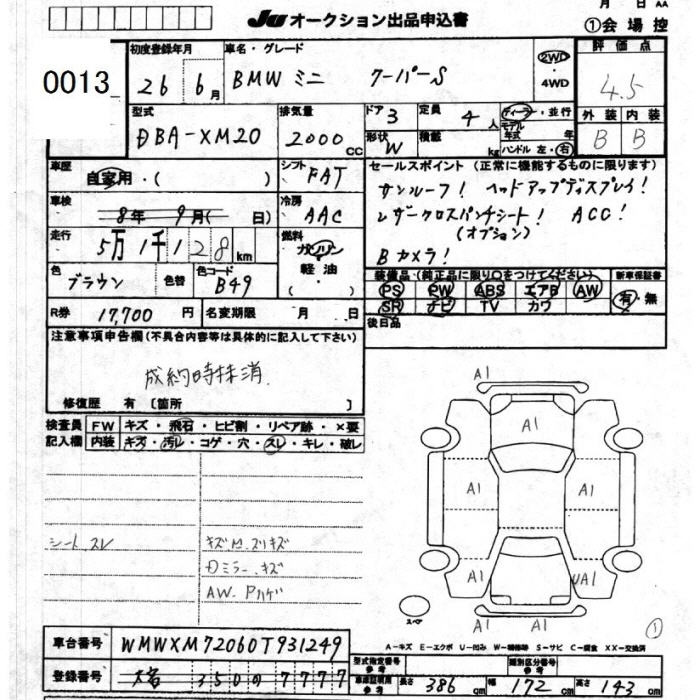 月 日 AA
JU オークション出品申込書
①会場控
0013
初度登録年月
26年 6月
車名・グレード
BMW ミニ クーパーS
2WD
4WD
評価点
4.5
外装 内装
B B
型式
DBA-XM20
排気量
2000 CC
ドア 3
定員 4人
形状 W
積載 kg
ディーラー・並行
モデル年式 年
ハンドル 左・右
車歴
自家用・( )
シフト
FAT
車検
8年 9月( 日)
冷房
AAC
走行
5万1千128km
燃料
ガソリン
軽油
( )
色
ブラウン
色替
色コード
B49
R券
17,700円
名変期限 月 日
セールスポイント(正常に機能するものに限ります)
サンルーフ! ヘッドアップディスプレイ!
レザークロスパンチシート! ACC!
(オプション)
Bカメラ!
装備品・(純正品に限り○をつけてください)
PS PW ABS エアB AW
SR ナビ TV カワ
新車保証書
有・無
後日品
注意事項申告欄(不具合内容等は具体的に記入して下さい)
成約時抹消
修復歴 有 〔箇所 〕
検査員記入欄
FW キズ・飛石・ヒビ割・リペア跡・×要
内装 キズ・汚レ・コゲ・穴・スレ・キレ・破レ
シートスレ
キズ M.スリキズ
Dミラーキズ
AW. Pハゲ
A1
A1
A1
A1
A1
UA1
A1
A1
スペア
①
A－キズ E－エクボ U－凹み W－補修跡 S－サビ C－腐食 XX－交換済
車台番号
WMWXM72060T931249
登録番号
350 7777
型式指定番号
参考
類別区分番号
参考
車庫証明用
参考
長さ 386cm
幅 172cm
高さ 143cm